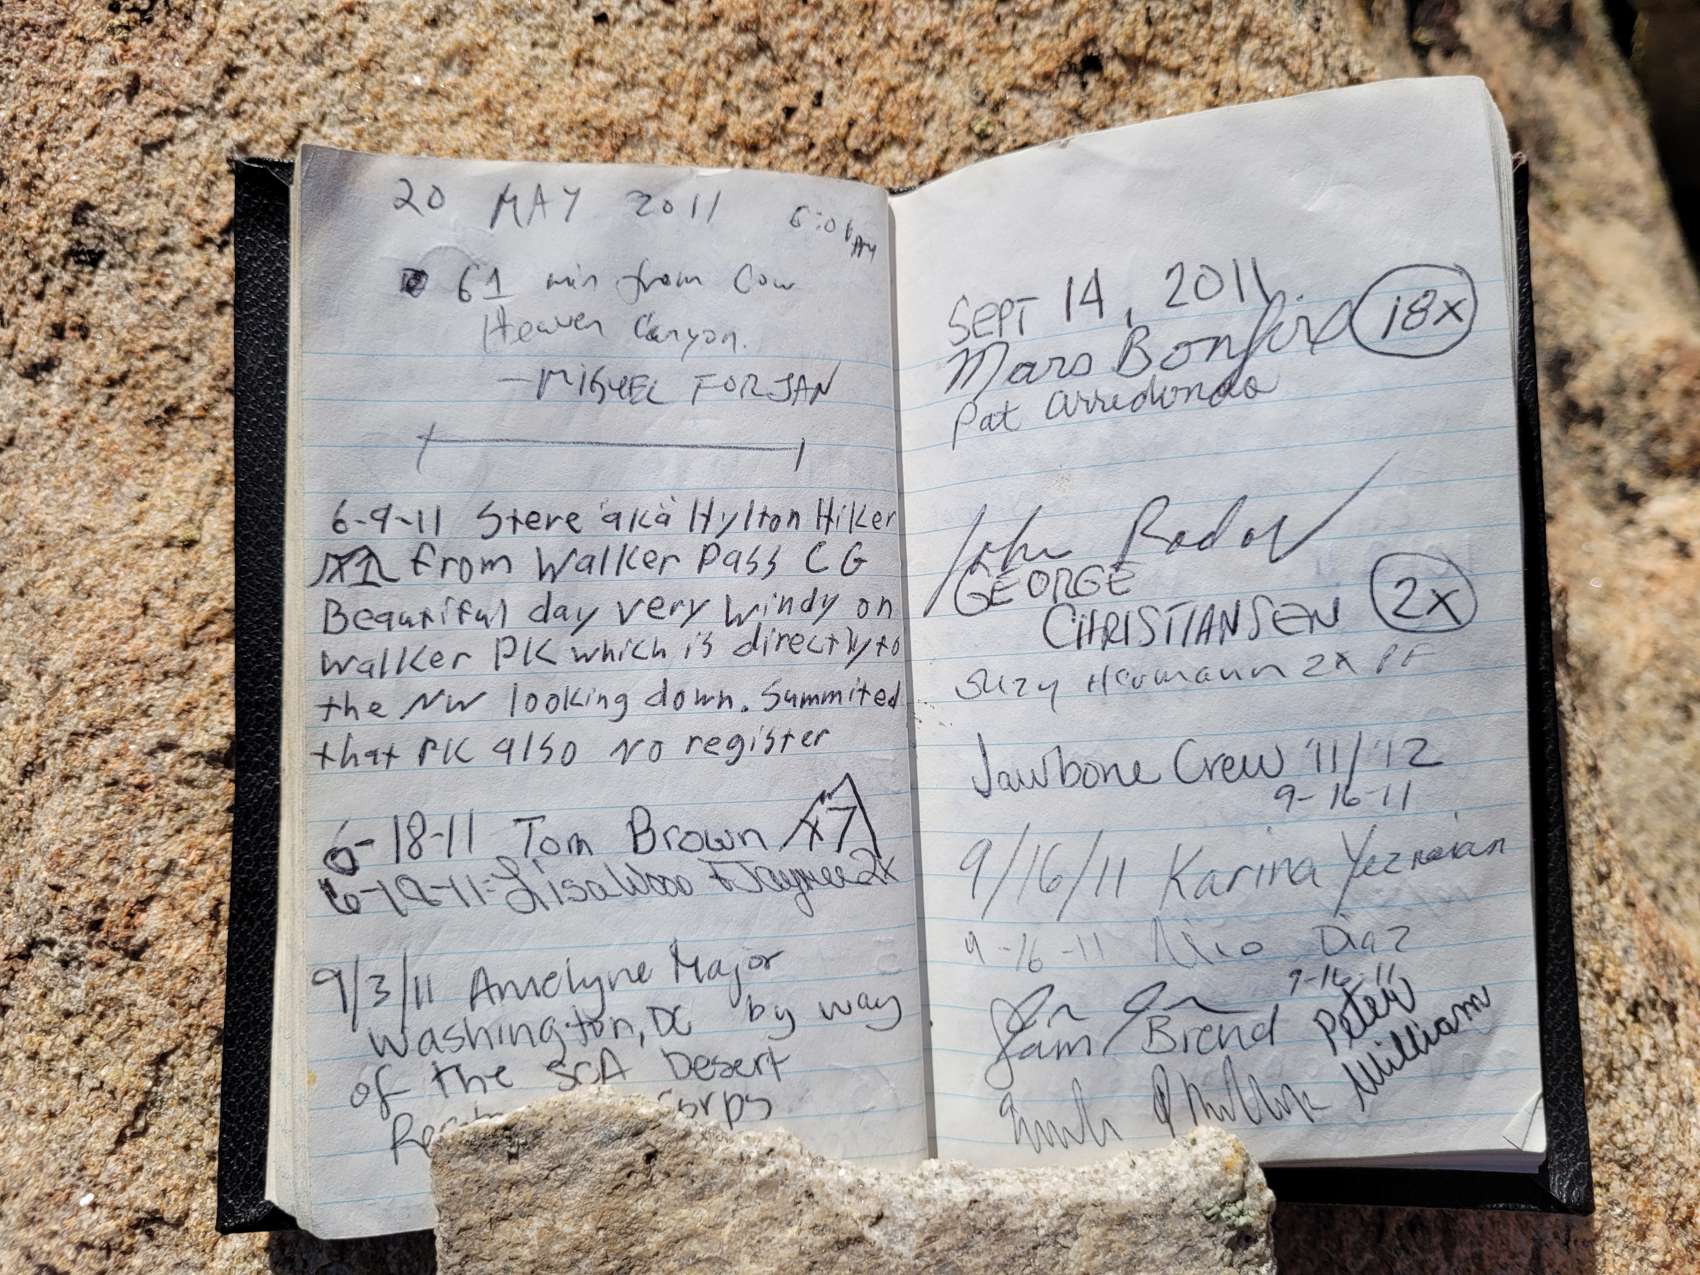 20 MAY 2011 6:01 AM
61 min from Cow
Heaven Canyon.
- MIGUEL FORJAN
6-9-11 Steve aka Hylton Hiker
from Walker Pass CG
Beautiful day very windy on
Walker PK which is directly to
the NW looking down. Summited
that PK also No register
6-18-11 Tom Brown x7
6-18-11 Lisa Woo 2x
9/3/11 Amelyne Major
Washington, DC by way
of the SCA Desert
Corps
SEPT 14, 2011
Mars Bonfire 18x
Pat Arredondo
John
GEORGE
CHRISTIANSEN 2x
Suzy Hermann 2x
Jawbone Crew '11/'12
9-16-11
9/16/11 Karina
9-16-11 Nico Diaz
9-16-11
Sam Brend Peter
William